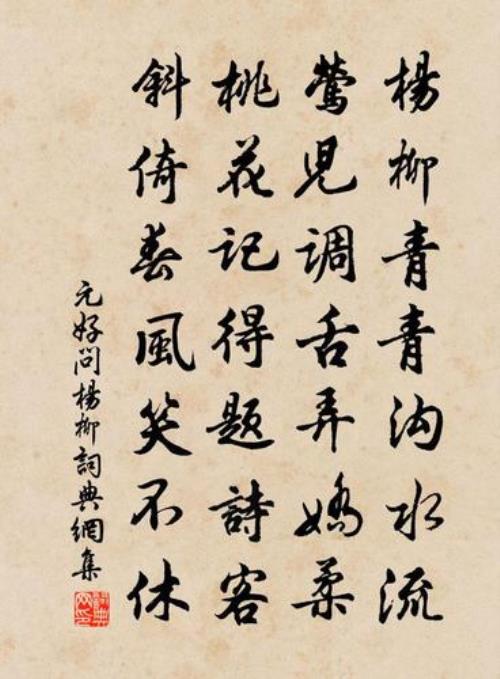 楊柳青青沟水流
鶯兒調舌弄嬌柔
桃花記得题詩客
斜倚春風笑不休
元好问楊柳詞典網集